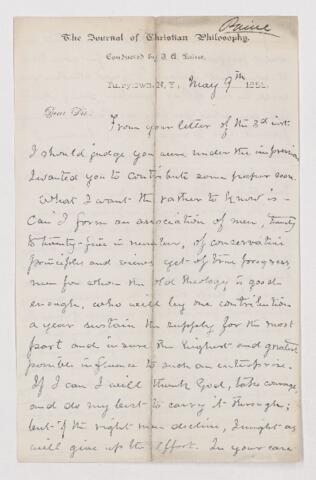 Paine
The Journal of Christian Philosophy.
Conducted by J. A. Paine.
Tarrytown, N. Y., May 9th 188
Dear Sir:
From your letter of the 3d inst.
I should judge you were under the impression
I wanted you to contribute some paper soon.
What I want the rather to know is—
Can I form an association of men, twenty
to twenty-five in number, of conservative
principles and views yet of true progress,
men for whom the old theology is good
enough, who will by one contribution
a year sustain the supply for the most
part and insure the highest and greatest
possible influence to such an enterprise.
If I can I will thank God, take courage,
and do my best to carry it through;
but if the right men decline, I might as
well give up the effort. In your case